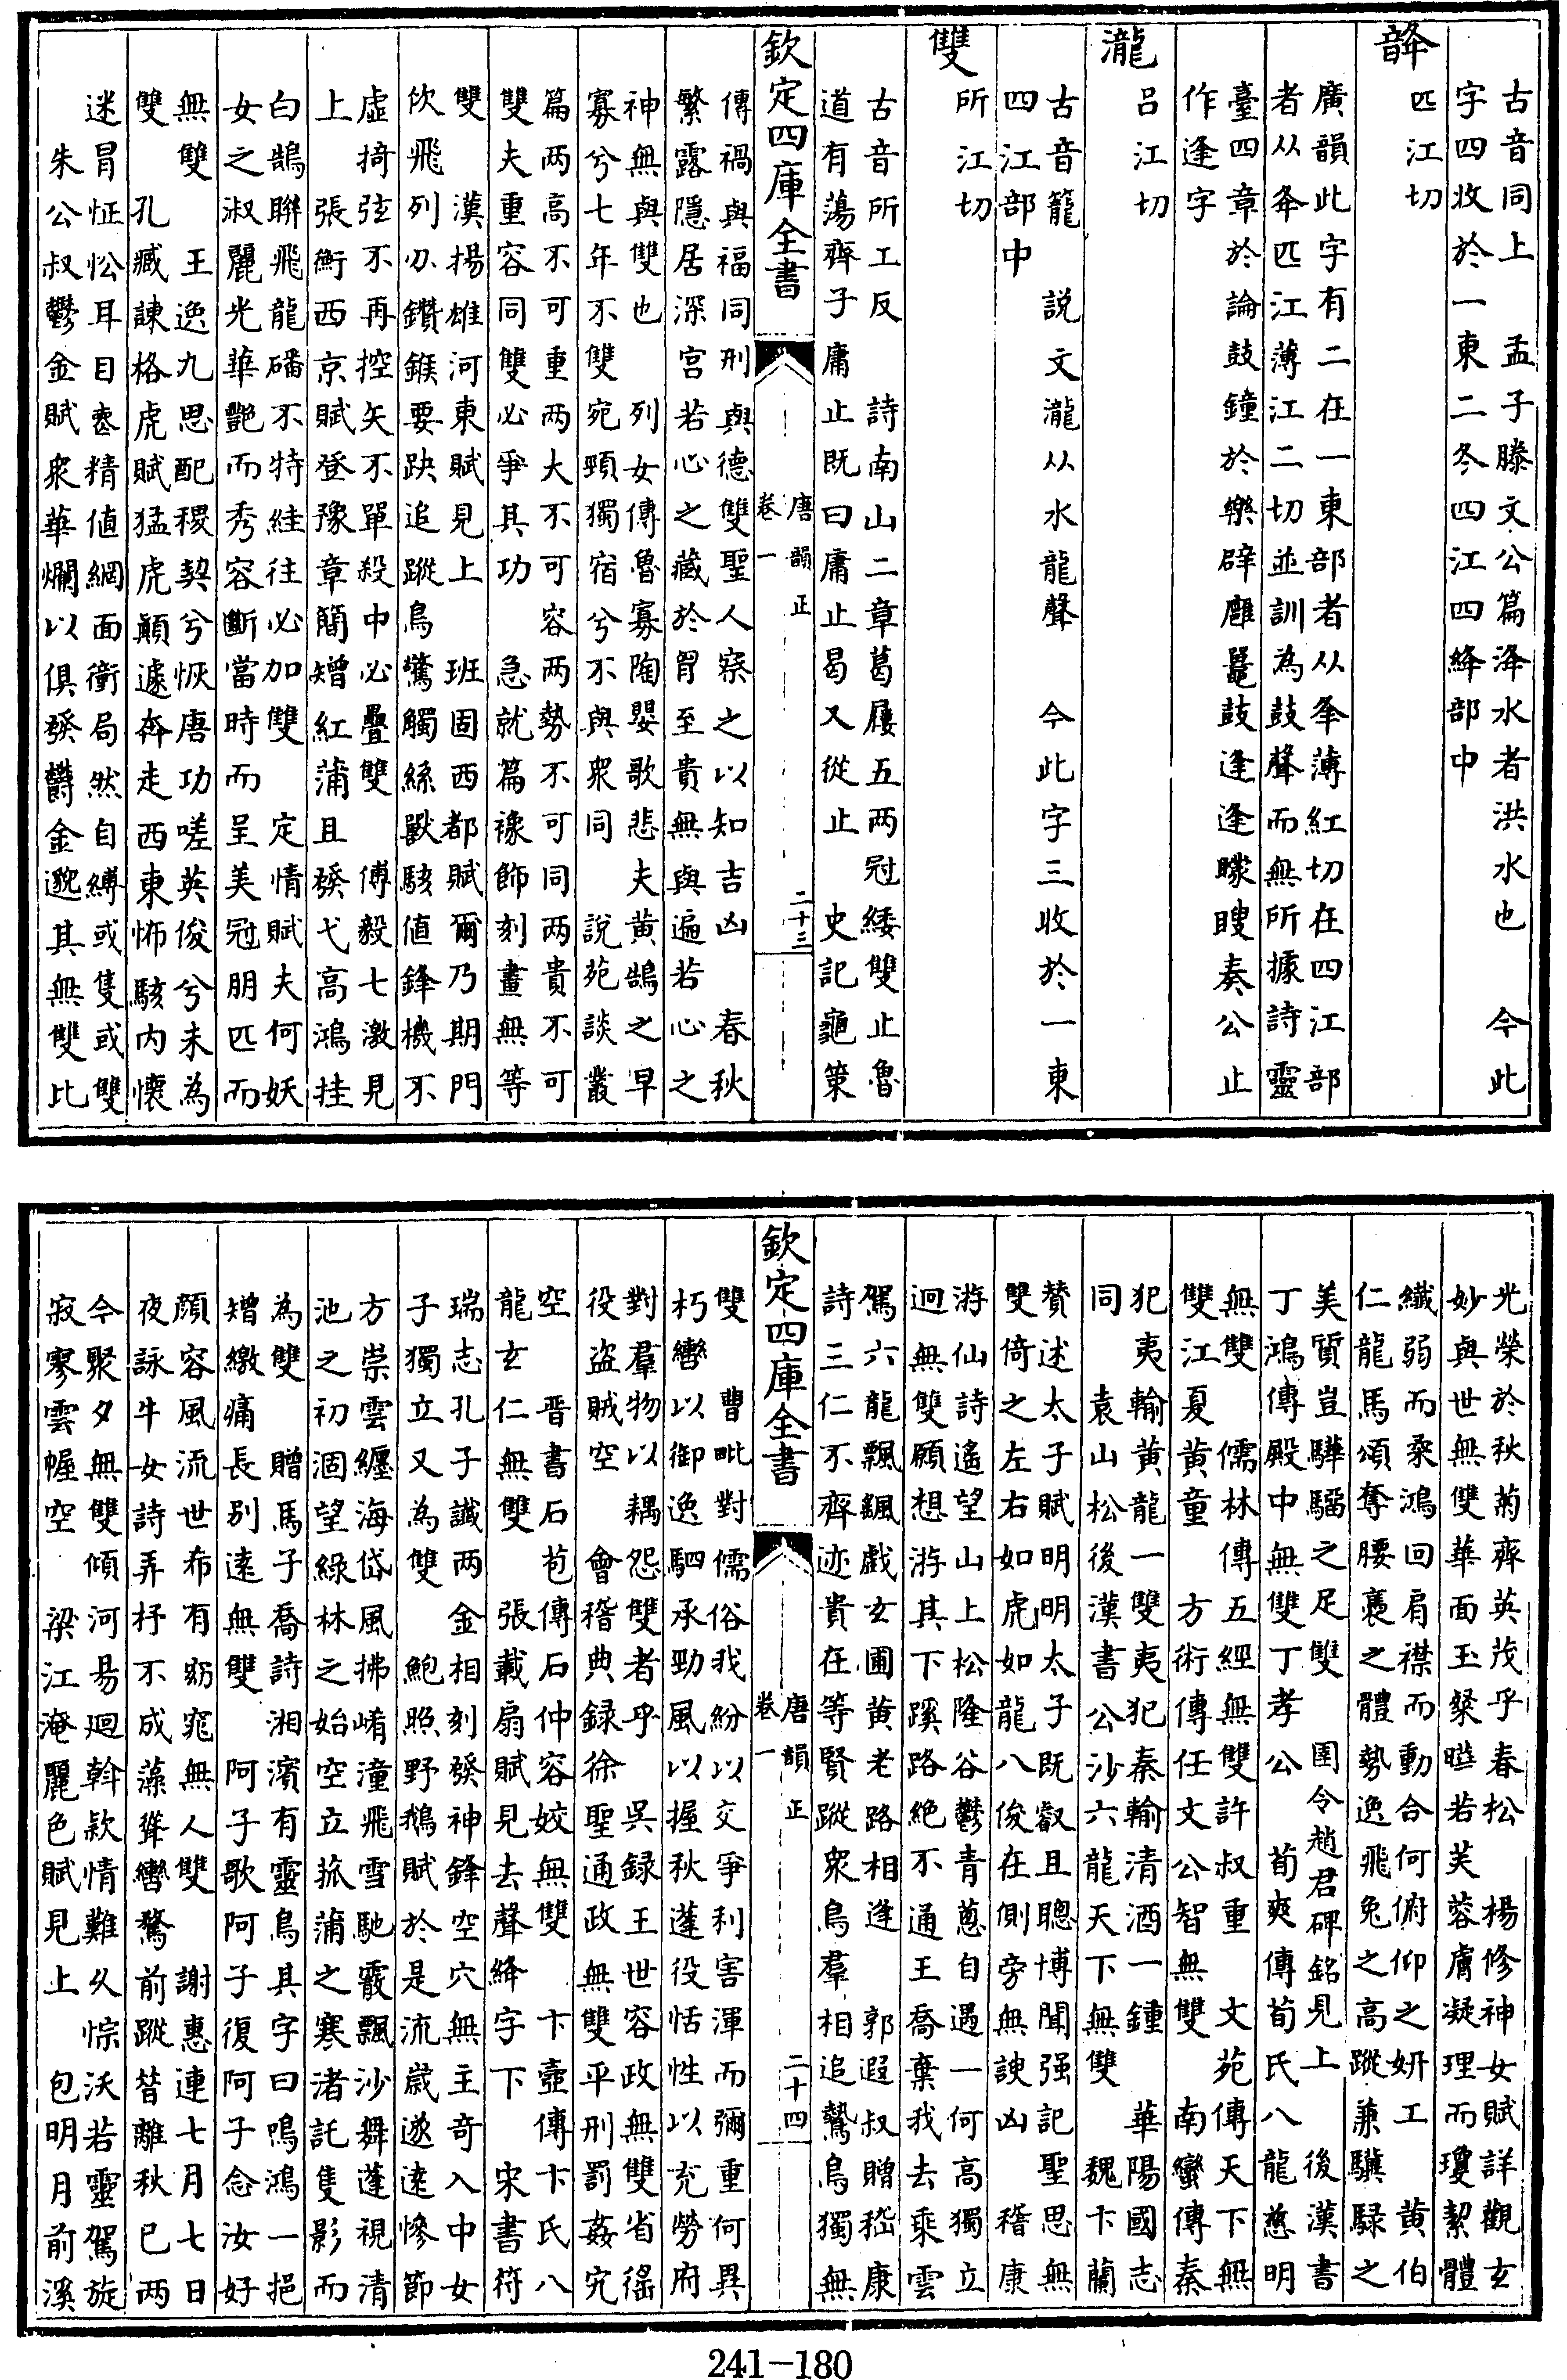 古音同上　孟子滕文公篇洚水者洪水也　今此
字四收於一東二冬四江四絳部中
匹江切
廣韻此字有二在一東部者从夆薄紅切在四江部
者从夅匹江薄江二切並訓為鼓聲而無所據詩靈
臺四章於論鼓鐘於樂辟廱鼉鼓逢逢矇瞍奏公止
作逢字
瀧 吕江切
古音籠　説文瀧从水龍聲　今此字三收於一東
四江部中
雙 所江切
古音所工反　詩南山二章葛屨五两冠緌雙止魯
道有蕩齊子庸止既曰庸止曷又從止　史記龜策
欽定四庫全書
唐韻正
卷一
二十三
傳禍與福同刑與德雙聖人察之以知吉凶　春秋
繁露隱居深宫若心之藏於胷至貴無與遍若心之
神無與雙也　列女傳魯寡陶嬰歌悲夫黄鵠之早
寡兮七年不雙宛頸獨宿兮不與衆同　說苑談叢
篇两高不可重两大不可容两勢不可同两貴不可
雙夫重容同雙必爭其功　急就篇襐飾刻畫無等
雙　漢揚雄河東賦見上　班固西都賦爾乃期門
佽飛列刃鑽鍭要趹追蹤鳥驚觸絲獸駭值鋒機不
虛掎弦不再控矢不單殺中必疊雙　傅毅七激見
上　張衡西京賦登豫章簡矰紅蒲且發弋高鴻挂
白鵠聯飛龍磻不特絓往必加雙　定情賦夫何妖
女之淑麗光華艷而秀容斷當時而呈美冠朋匹而
無雙　王逸九思配稷契兮恢唐功嗟英俊兮未為
雙　孔臧諫格虎賦猛虎顛遽奔走西東怖駭内懷
迷冒怔忪耳目喪精值網而衝局然自縛或隻或雙
朱公叔鬱金賦衆華爛以俱發鬱金邈其無雙比
光榮於秋菊齊英茂乎春松　楊修神女賦詳觀玄
妙與世無雙華面玉粲韡若芙蓉膚凝理而瓊絜體
纖弱而柔鴻回肩襟而動合何俯仰之妍工　黄伯
仁龍馬頌奪腰褭之體勢逸飛兔之高蹤兼驥騄之
美質豈驊騮之足雙　圉令趙君碑銘見上　後漢書
丁鴻傳殿中無雙丁孝公　荀爽傳荀氏八龍慈明
無雙　儒林傳五經無雙許叔重　文苑傳天下無
雙江夏黄童　方術傳任文公智無雙　南蠻傳秦
犯夷輸黄龍一雙夷犯秦輸清酒一鍾　華陽國志
同　袁山松後漢書公沙六龍天下無雙　魏卞蘭
賛述太子賦明明太子既叡且聰博聞强記聖思無
雙倚之左右如虎如龍八俊在側旁無諛凶　稽康
游仙詩遙望山上松隆谷鬱青葱自遇一何高獨立
迥無雙願想游其下蹊路絶不通王喬棄我去乘雲
駕六龍飄颻戲玄圃黄老路相逢　郭遐叔贈嵇康
詩三仁不齊迹貴在等賢蹤衆鳥羣相追鷙鳥獨無
欽定四庫全書
唐韻正
卷一
二十四
雙　曹毗對儒俗我紛以交爭利害渾而彌重何異
朽轡以御逸駟承勁風以握秋蓬役恬性以充勞府
對羣物以耦怨雙者乎　呉録王世容政無雙省徭
役盗賊空　會稽典録徐聖通政無雙平刑罰姦宄
空　晋書石苞傳石仲容姣無雙　卞壼傳卞氏八
龍玄仁無雙　張載扇賦見去聲絳字下　宋書符
瑞志孔子讖两金相刻發神鋒空穴無主奇入中女
子獨立又為雙　鮑照野鵝賦於是流歲遂遠慘節
方崇雲纏海岱風拂崤潼飛雪馳霰飄沙舞蓬視清
池之初涸望綠林之始空立菰蒲之寒渚託隻影而
為雙　贈馬子喬詩湘濱有靈鳥其字曰鳴鴻一挹
矰繳痛長别逺無雙　阿子歌阿子復阿子念汝好
顔容風流世希有窈窕無人雙　謝惠連七月七日
夜詠牛女詩弄杼不成藻聳轡騖前蹤昔離秋已两
今聚夕無雙傾河易迴斡款情難久悰沃若靈駕旋
寂寥雲幄空　梁江淹麗色賦見上　包明月前溪
241-180